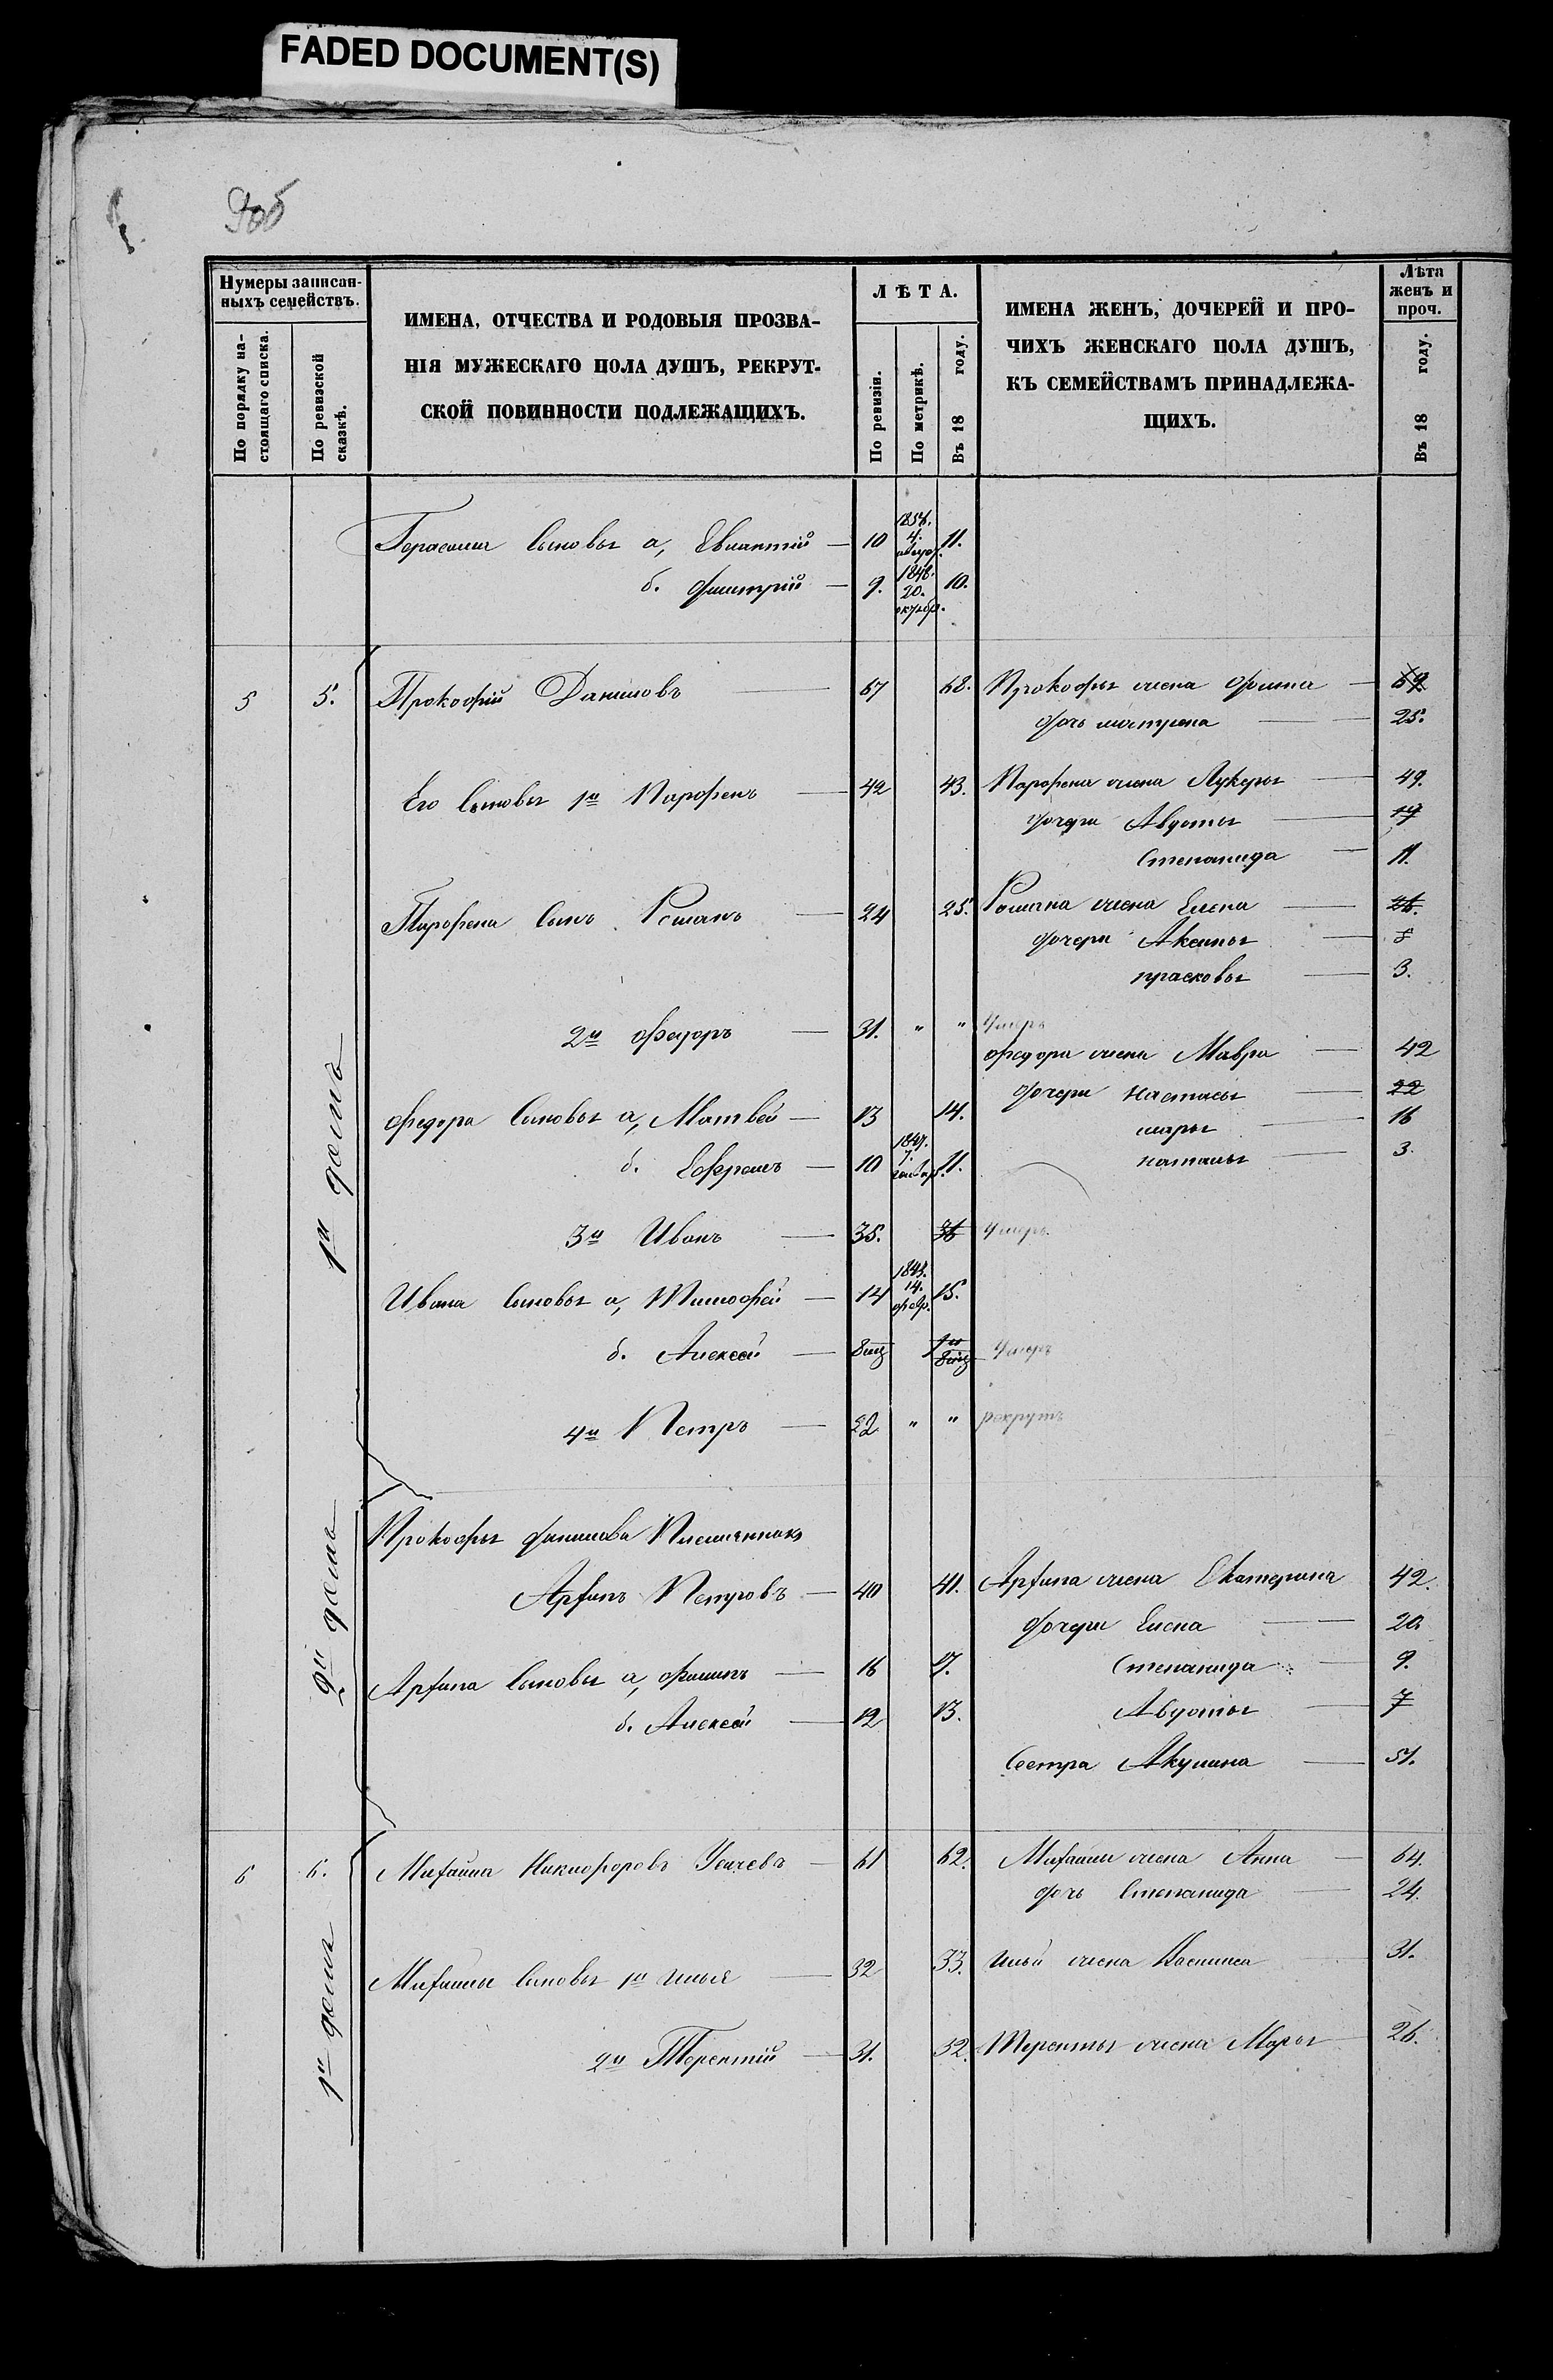 FADED DOCUMENT(S)
9об
Нумеры записан-
ныхъ семействъ.
По порядку на-
стоящаго списка.
По ревизской
сказкѣ.
ИМЕНА, ОТЧЕСТВА И РОДОВЫЯ ПРОЗВА-
НІЯ МУЖЕСКАГО ПОЛА ДУШЪ, РЕКРУТ-
СКОЙ ПОВИННОСТИ ПОДЛЕЖАЩИХЪ.
ЛѢТА.
По ревизіи.
По метрикѣ.
Въ 18 году.
ИМЕНА ЖЕНЪ, ДОЧЕРЕЙ И ПРО-
ЧИХЪ ЖЕНСКАГО ПОЛА ДУШЪ,
КЪ СЕМЕЙСТВАМЪ ПРИНАДЛЕЖА-
ЩИХЪ.
Лѣта
женъ и
проч.
Въ 18 году.
Герасима сыновья а, — 10 4. 11.
б. Дмитрій — 9. 1848. 20. октябр. 10.
1й домъ
5 5. Прокофій Даниловъ — 67 68. Прокофья жена — 69
дочь — 25.
Его сыновья 1й Парфенъ — 42 43. Парфена жена Лукерья — 49.
дочери Авдотья — 19
Степанида — 11.
Парфена сынъ Романъ — 24 25. Романа жена Елена — 26.
дочери Аксинья — 8
Прасковья — 3.
2й Федоръ — 31. " " Умеръ
Федора жена Мавра — 42
дочери Настасья — 22
Марья — 16
Наталья — 3.
Федора сыновья а, Матвей — 13 14.
б. Ефремъ — 10 7. 11.
3й Иванъ — 35. 36 Умеръ
Ивана сыновья а, Тимофей — 14 14. февр. 15.
б. Алексей — Умеръ
4й Петръ — 22 " " рекрутъ
2й домъ
Прокофья Данилова Племянникъ
Архипъ Петровъ — 40 41. Архипа жена Екатерина 42.
дочери Елена — 20
Архипа сыновья а, Филипъ — 16 17. Степанида — 9.
б. Алексей — 12 13. Авдотья — 7
Сестра Акулина — 51.
1й домъ
6 6. Михайла Никифоровъ Усачевъ — 61 62. Михайлы жена Анна — 64.
дочь Степанида — 24.
Михайлы сыновья 1й Илья — 32 33. Ильи жена — 31.
2й Терентій — 31. 32. Терентья жена Марья — 26.